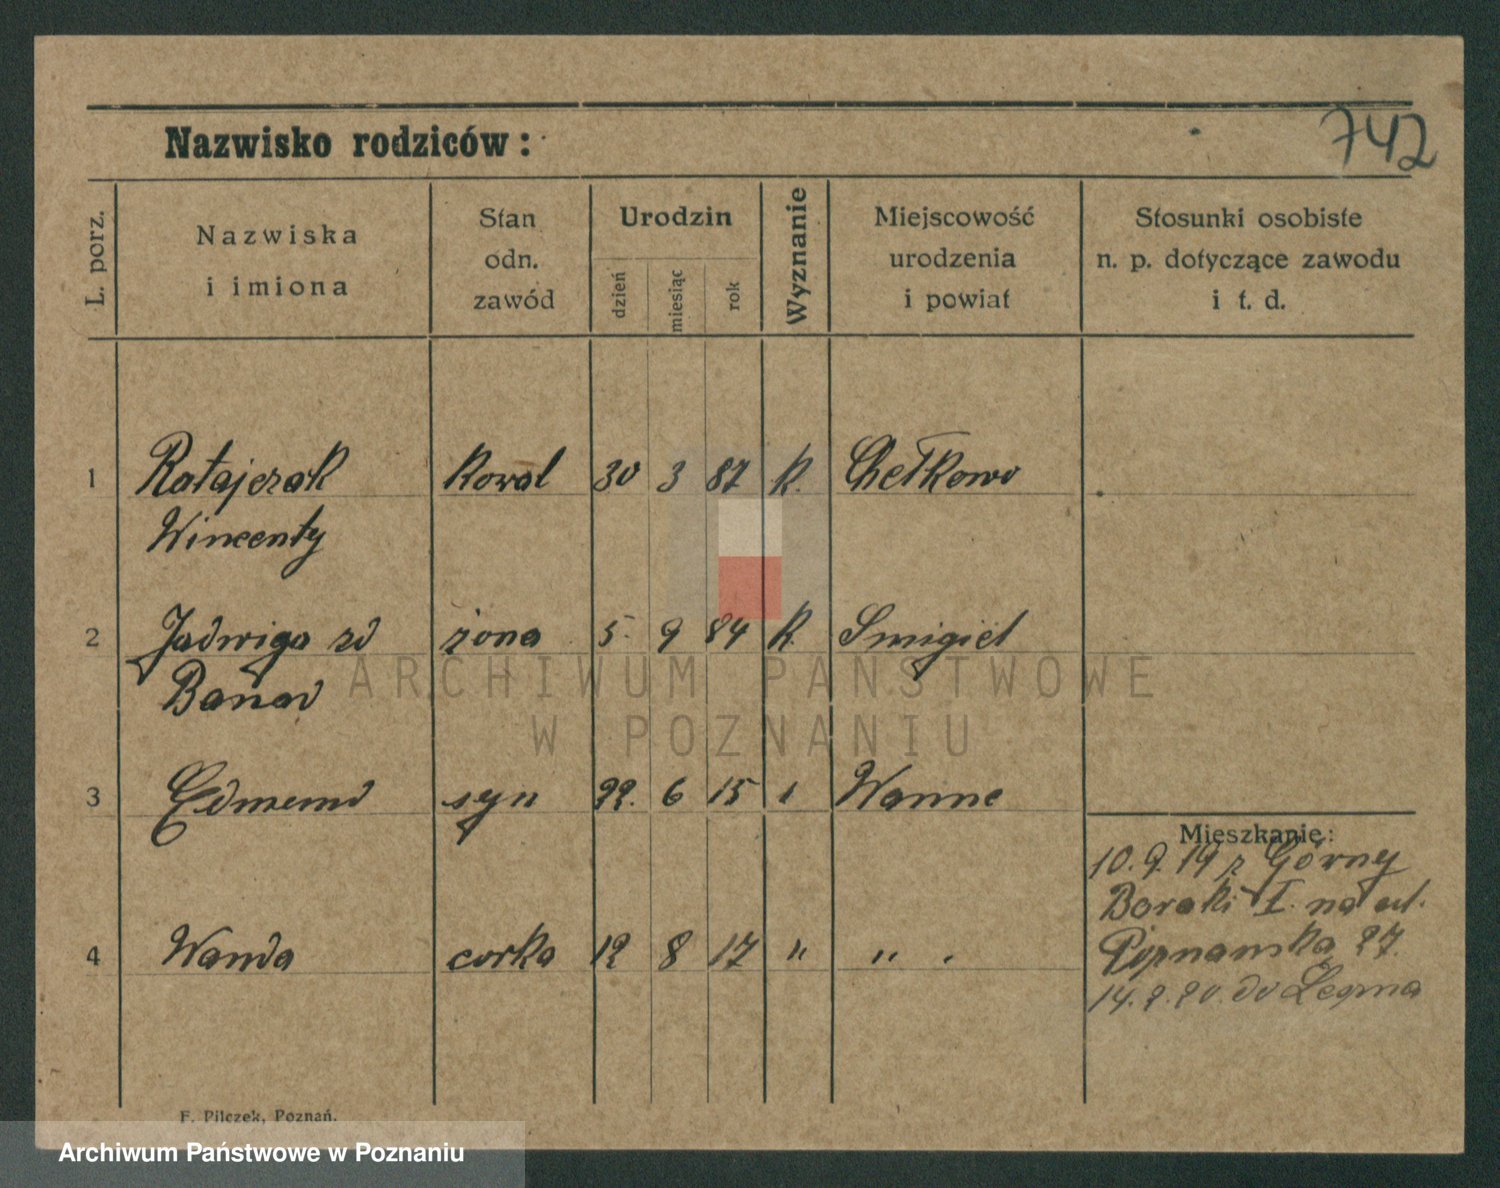 742
Nazwisko rodziców:
L. porz.
Nazwiska
i imiona
Stan
odn.
zawód
Urodzin
dzień
miesiąc
rok
Wyznanie
Miejscowość
urodzenia
i powiat
Stosunki osobiste
n. p. dotyczące zawodu
i t. d.
1 Ratajczak kowal 30 3 87 K. Chełkowo
Wincenty
2 Jadwiga zd żona 5. 9 84 K. Smigiel
3 Edmund syn 22. 6 15 Wanne
Mieszkanie:
10.9.19 z Górnej
Baraki I. na ul.
4 Wanda corka 12 8 17 " "
27.
do
F. Pilczek, Poznań.
ARCHIWUM PAŃSTWOWE
W POZNANIU
Archiwum Państwowe w Poznaniu